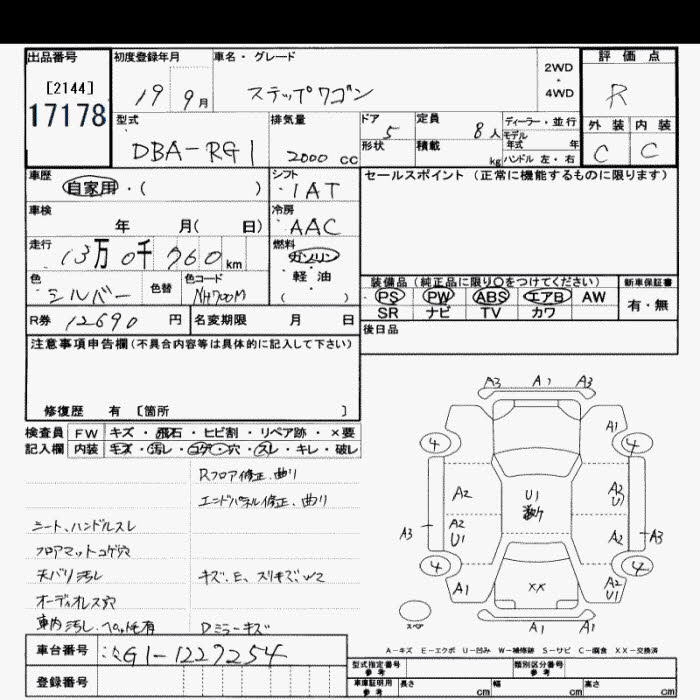 出品番号
[2144]
17178
初度登録年月
19 9月
車名・グレード
ステップワゴン
2WD
・
4WD
評価点
R
型式
DBA-RG1
排気量
2000 cc
ドア
5
形状
定員
8人
積載
kg
ディーラー・並行
モデル
年式 年
ハンドル 左・右
外装 内装
C C
車歴
自家用・( )
シフト
・IAT
セールスポイント(正常に機能するものに限ります)
車検
年 月( 日)
冷房
AAC
走行
13万0千760km
燃料
ガソリン
・
軽油
( )
色
シルバー
色替
色コード
NH700M
装備品(純正品に限り○をつけてください)
新車保証書
PS PW ABS エアB AW
有・無
SR ナビ TV カワ
R券 12690円
名変期限 月 日
後日品
注意事項申告欄(不具合内容等は具体的に記入して下さい)
修復歴 有 [箇所 ]
検査員
記入欄
FW キズ・飛石・ヒビ割・リペア跡・×要
内装 キズ・汚レ・コゲ・穴・スレ・キレ・破レ
Rフロア修正、曲り
エンドパネル修正、曲り
シート、ハンドルスレ
フロアマットコゲ穴
天バリ汚レ
キズ、E、スリキズ、W2
オーディオレス穴
車内汚レ、ペット毛有
Dミラーキズ
A3 A1 A3
A1
4 4
A2
U1
数ケ
A2
U1
A3
A2
U1
A2
A3
4 4
XX
A1
A2
U1
スペア
A1 A1
A-キズ E-エクボ U-凹み W-補修跡 S-サビ C-腐食 XX-交換済
車台番号
RG1-1227254
登録番号
型式指定番号
参考
類別区分番号
参考
車庫証明用
参考
長さ cm
幅 cm
高さ cm